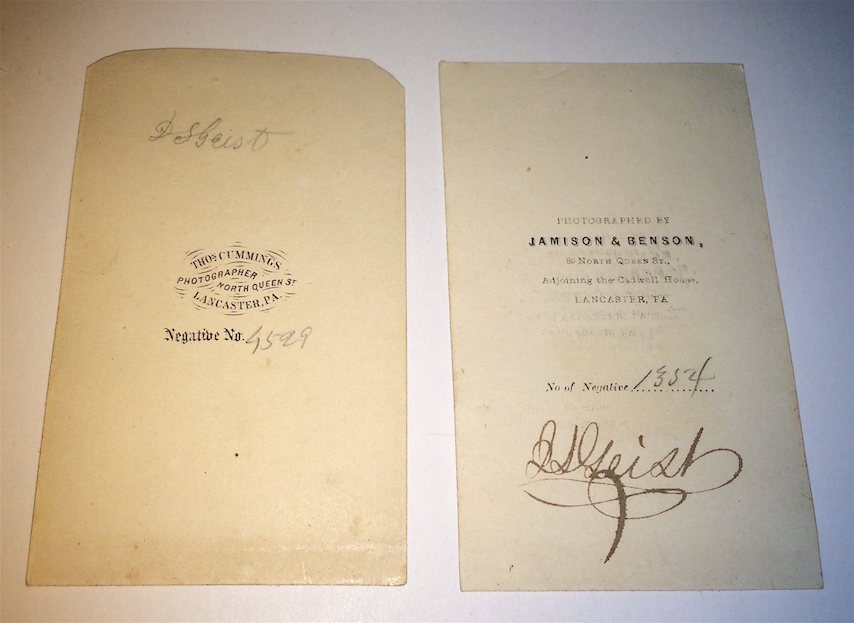 D S Geist
THOS CUMMINGS
PHOTOGRAPHER
NORTH QUEEN ST
LANCASTER, PA.
Negative No. 4529
PHOTOGRAPHED BY
JAMISON & BENSON,
NORTH QUEEN ST.,
Adjoining the Cadwell House,
LANCASTER, PA
No of Negative 1354
D S Geist